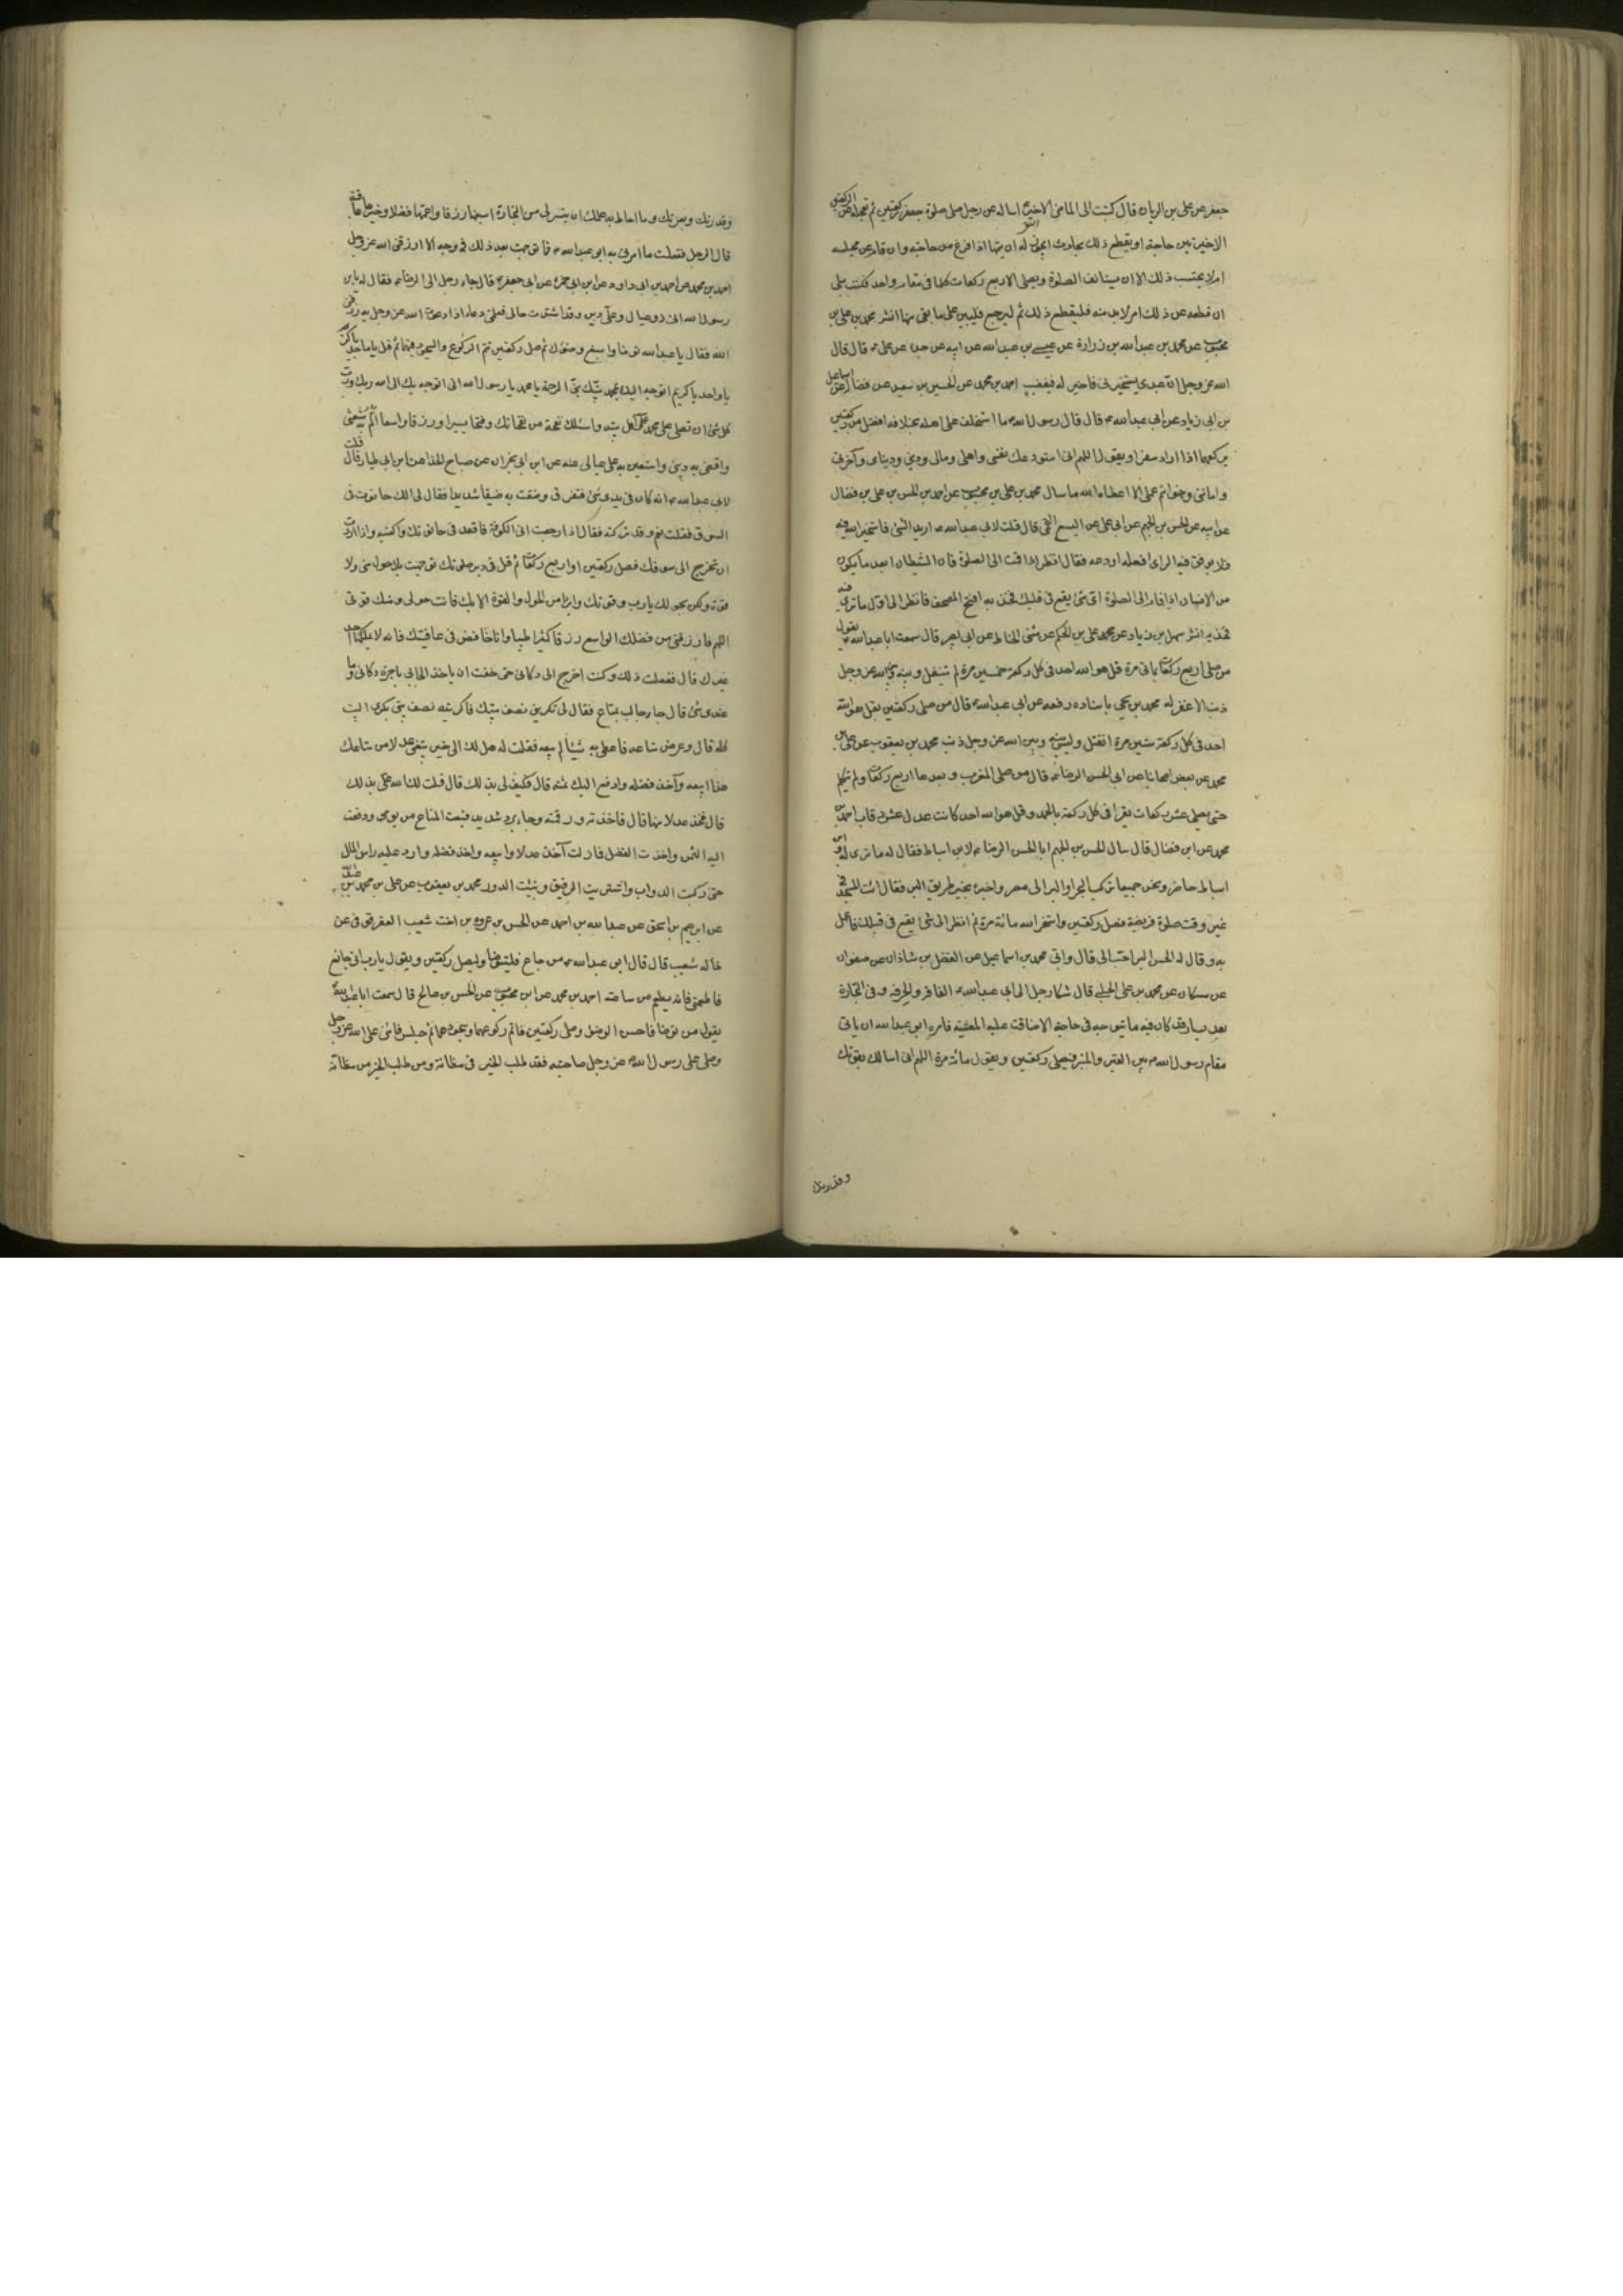 جعفر عن علي بن الريان قال كتبت الى الماضي الاخير ع اساله عن رجل صلى صلوة جعفر ركعتين ثم تعجله عن الركعتين
الاخيرتين حاجة او يقطع ذلك بحادث ايجوز له ان يتمها اذا فرغ من حاجته وان قام عن مجلسه
ام لا يحتسب ذلك الا ان يستانف الصلوة ويصلي الاربع ركعات كلها في مقام واحد فكتب بلى
ان قطعه عن ذلك امر لابد منه فليقطع ذلك ثم ليرجع فليبن على ما بقي منها انشر محمد بن علي بن
محبوب عن محمد بن عبدالله بن زرارة عن عيسى بن عبدالله عن ابيه عن جده عن علي ع قال قال
الله عز وجل ان عبدي يستخيرني فاخير له فيغضب احمد بن محمد عن الحسين بن سعيد عن فضالة عن اسماعيل
بن ابي زياد عن ابي عبدالله ع قال قال رسول الله ص ما استخلف على اهله بخلافة افضل من ركعتين
يركعهما اذا اراد سفرا ويقول اللهم اني استودعك نفسي واهلي ومالي وديني ودنياي وآخرتي
وامانتي وخواتم عملي الا اعطاه الله ما سال محمد بن علي بن محبوب عن احمد بن الحسن بن علي بن فضال
عن ابيه عن الحسن بن الجهم عن ابي علي عن اليسع القمي قال قلت لابي عبدالله ع اريد الشئ فاستخير الله فيه
فلا يوفق فيه الراي افعله او دعه فقال انظر اذا قمت الى الصلوة فان الشيطان ابعد ما يكون
من الانسان اذا قام الى الصلوة اي شئ يقع في قلبك فخذ به افتح المصحف فانظر الى اول ما ترى فيه
فخذ به انشر سهل بن زياد عن محمد علي بن الحكم عن مثنى الحناط عن ابي بصير قال سمعت ابا عبدالله ع يقول
من صلى اربع ركعات بماتي مرة قل هو الله احد في كل ركعة خمسين مرة لم ينفتل وبينه وبين الله عز وجل
ذنب الا غفر له محمد بن يحيى باسناده رفعه عن ابي عبدالله ع قال من صلى ركعتين بقل هو الله
احد في كل ركعة ستين مرة انفتل وليس بينه وبين الله عز وجل ذنب محمد بن يعقوب عن علي بن
محمد عن بعض اصحابنا عن ابي الحسن الرضا ع قال من صلى المغرب وبعدها اربع ركعات ولم يتكلم
حتى يصلي عشر ركعات يقرا في كل ركعة بالحمد وقل هو الله احد كانت عدل عشر رقاب احمد بن
محمد عن ابن فضال قال سال الحسن بن الجهم ابا الحسن الرضا ع لابن اسباط فقال له ما ترى له وابن
اسباط حاضر ونحن جميعا نركب البحر او البر الى مصر واخبره بخير طريق البر فقال ائت المسجد في
غير وقت صلوة فريضة فصل ركعتين واستخر الله مائة مرة ثم انظر الى شئ يقع في قلبك فاعمل
به وقال له الحسن البر احب الي قال والي محمد بن اسماعيل عن الفضل بن شاذان عن صفوان
عن مسكان عن محمد بن علي الحلبي قال شكا رجل الى ابي عبدالله ع الفاقة والحرفة وفي التجارة
بعد يسار قد كان فيه ما يتوجه في حاجة الا ضاقت عليه المعيشة فامره ابو عبدالله ان ياتي
مقام رسول الله ص بين القبر والمنبر فيصلي ركعتين ويقول مائة مرة اللهم اني اسالك بقوتك
وقدرتك
وقدرتك وبعزتك وما احاط به علمك ان يتيسر لي من التجارة اسبغها رزقا واعمها فضلا وخيرها عاقبة
قال الرجل ففعلت ما امرني به ابو عبدالله ع فما توجهت بعد ذلك في وجه الا رزقني الله عز وجل
احمد بن محمد عن احمد بن ابي داود عن ابن ابي حمزة عن ابي جعفر ع قال جاء رجل الى الرضا ع فقال له يا بن
رسول الله اني ذو عيال وعلي دين وقد اشتدت حالي فعلمني دعاء اذا دعوت الله عز وجل به رزقني
الله فقال يا عبدالله توضا واسبغ وضوءك ثم صل ركعتين تتم الركوع والسجود فيهما ثم قل يا ماجد يا كريم
يا واحد يا كريم اتوجه اليك بمحمد نبيك نبي الرحمة يا محمد يا رسول الله اني اتوجه بك الى الله ربك ورب
كل شئ ان تصلي على محمد وعلى اهل بيته واسئلك نفحة من نفحاتك وفتحا يسيرا ورزقا واسعا الم به شعثي
واقضي به ديني واستعين به على عيالي عنه عن ابن ابي نجران عن صباح الحذا عن ابن ابي طيار قال قلت
لابي عبدالله ع انه كان في يدي شئ فتفرق وضقت به ضيقا شديدا فقال لي الك حانوت في
السوق فقلت نعم وقد تركته فقال اذا رجعت الى الكوفة فاقعد في حانوتك واكنسه واذا اردت
ان تخرج الى سوقك فصل ركعتين او اربع ركعات ثم قل في دبر صلوتك توجهت بلا حول مني ولا
قوة ولكن بحولك يا رب وقوتك وابرا من الحول والقوة الا بك فانت حولي ومنك قوتي
اللهم فارزقني من فضلك الواسع رزقا كثيرا طيبا وانا خافض في عافيتك فانه لا يملكها احد
غيرك قال ففعلت ذلك وكنت اخرج الى دكاني حتى خفت ان ياخذ الجابي باجرة دكاني وما
عندي شئ قال فجاء جالب بمتاع فقال لي تكريني نصف بيتك فاكريته نصف بيتي بكري البيت
كله قال وعرض متاعه فاعطي به شيئا لم يبعه فقلت له هل لك الى خير تبيعني عدلا من متاعك
هذا ابيعه وآخذ فضله وادفع اليك ثمنه قال فكيف لي بذلك قال قلت لك الله علي بذلك
قال فخذ عدلا منها قال فاخذته ورقمته وجاء برد شديد فبعت المتاع من يومي ودفعت
اليه الثمن واخذت الفضل فما زلت آخذ عدلا وابيعه واخذ فضله وارد عليه راس المال
حتى ركبت الدواب واشتريت الرقيق وبنيت الدور محمد بن يعقوب عن علي بن محمد بن عبدالله
عن ابرهيم بن اسحق عن عبدالله بن احمد عن الحسن بن عروة بن اخت شعيب العقرقوفي عن
خاله شعيب قال قال ابو عبدالله ع من جاع فليتوضا وليصل ركعتين ويقول يا رب اني جائع
فاطعمني فانه يطعم من ساعته احمد بن محمد عن ابن محبوب عن الحسن بن صالح قال سمعت ابا عبدالله ع
يقول من توضا فاحسن الوضوء وصلى ركعتين فاتم ركوعهما وسجودهما ثم جلس فاثنى على الله عز وجل
وصلى على رسول الله ص عز وجل صاحبته فقد طلب الخير في مظانه ومن طلب الخير من مظانه